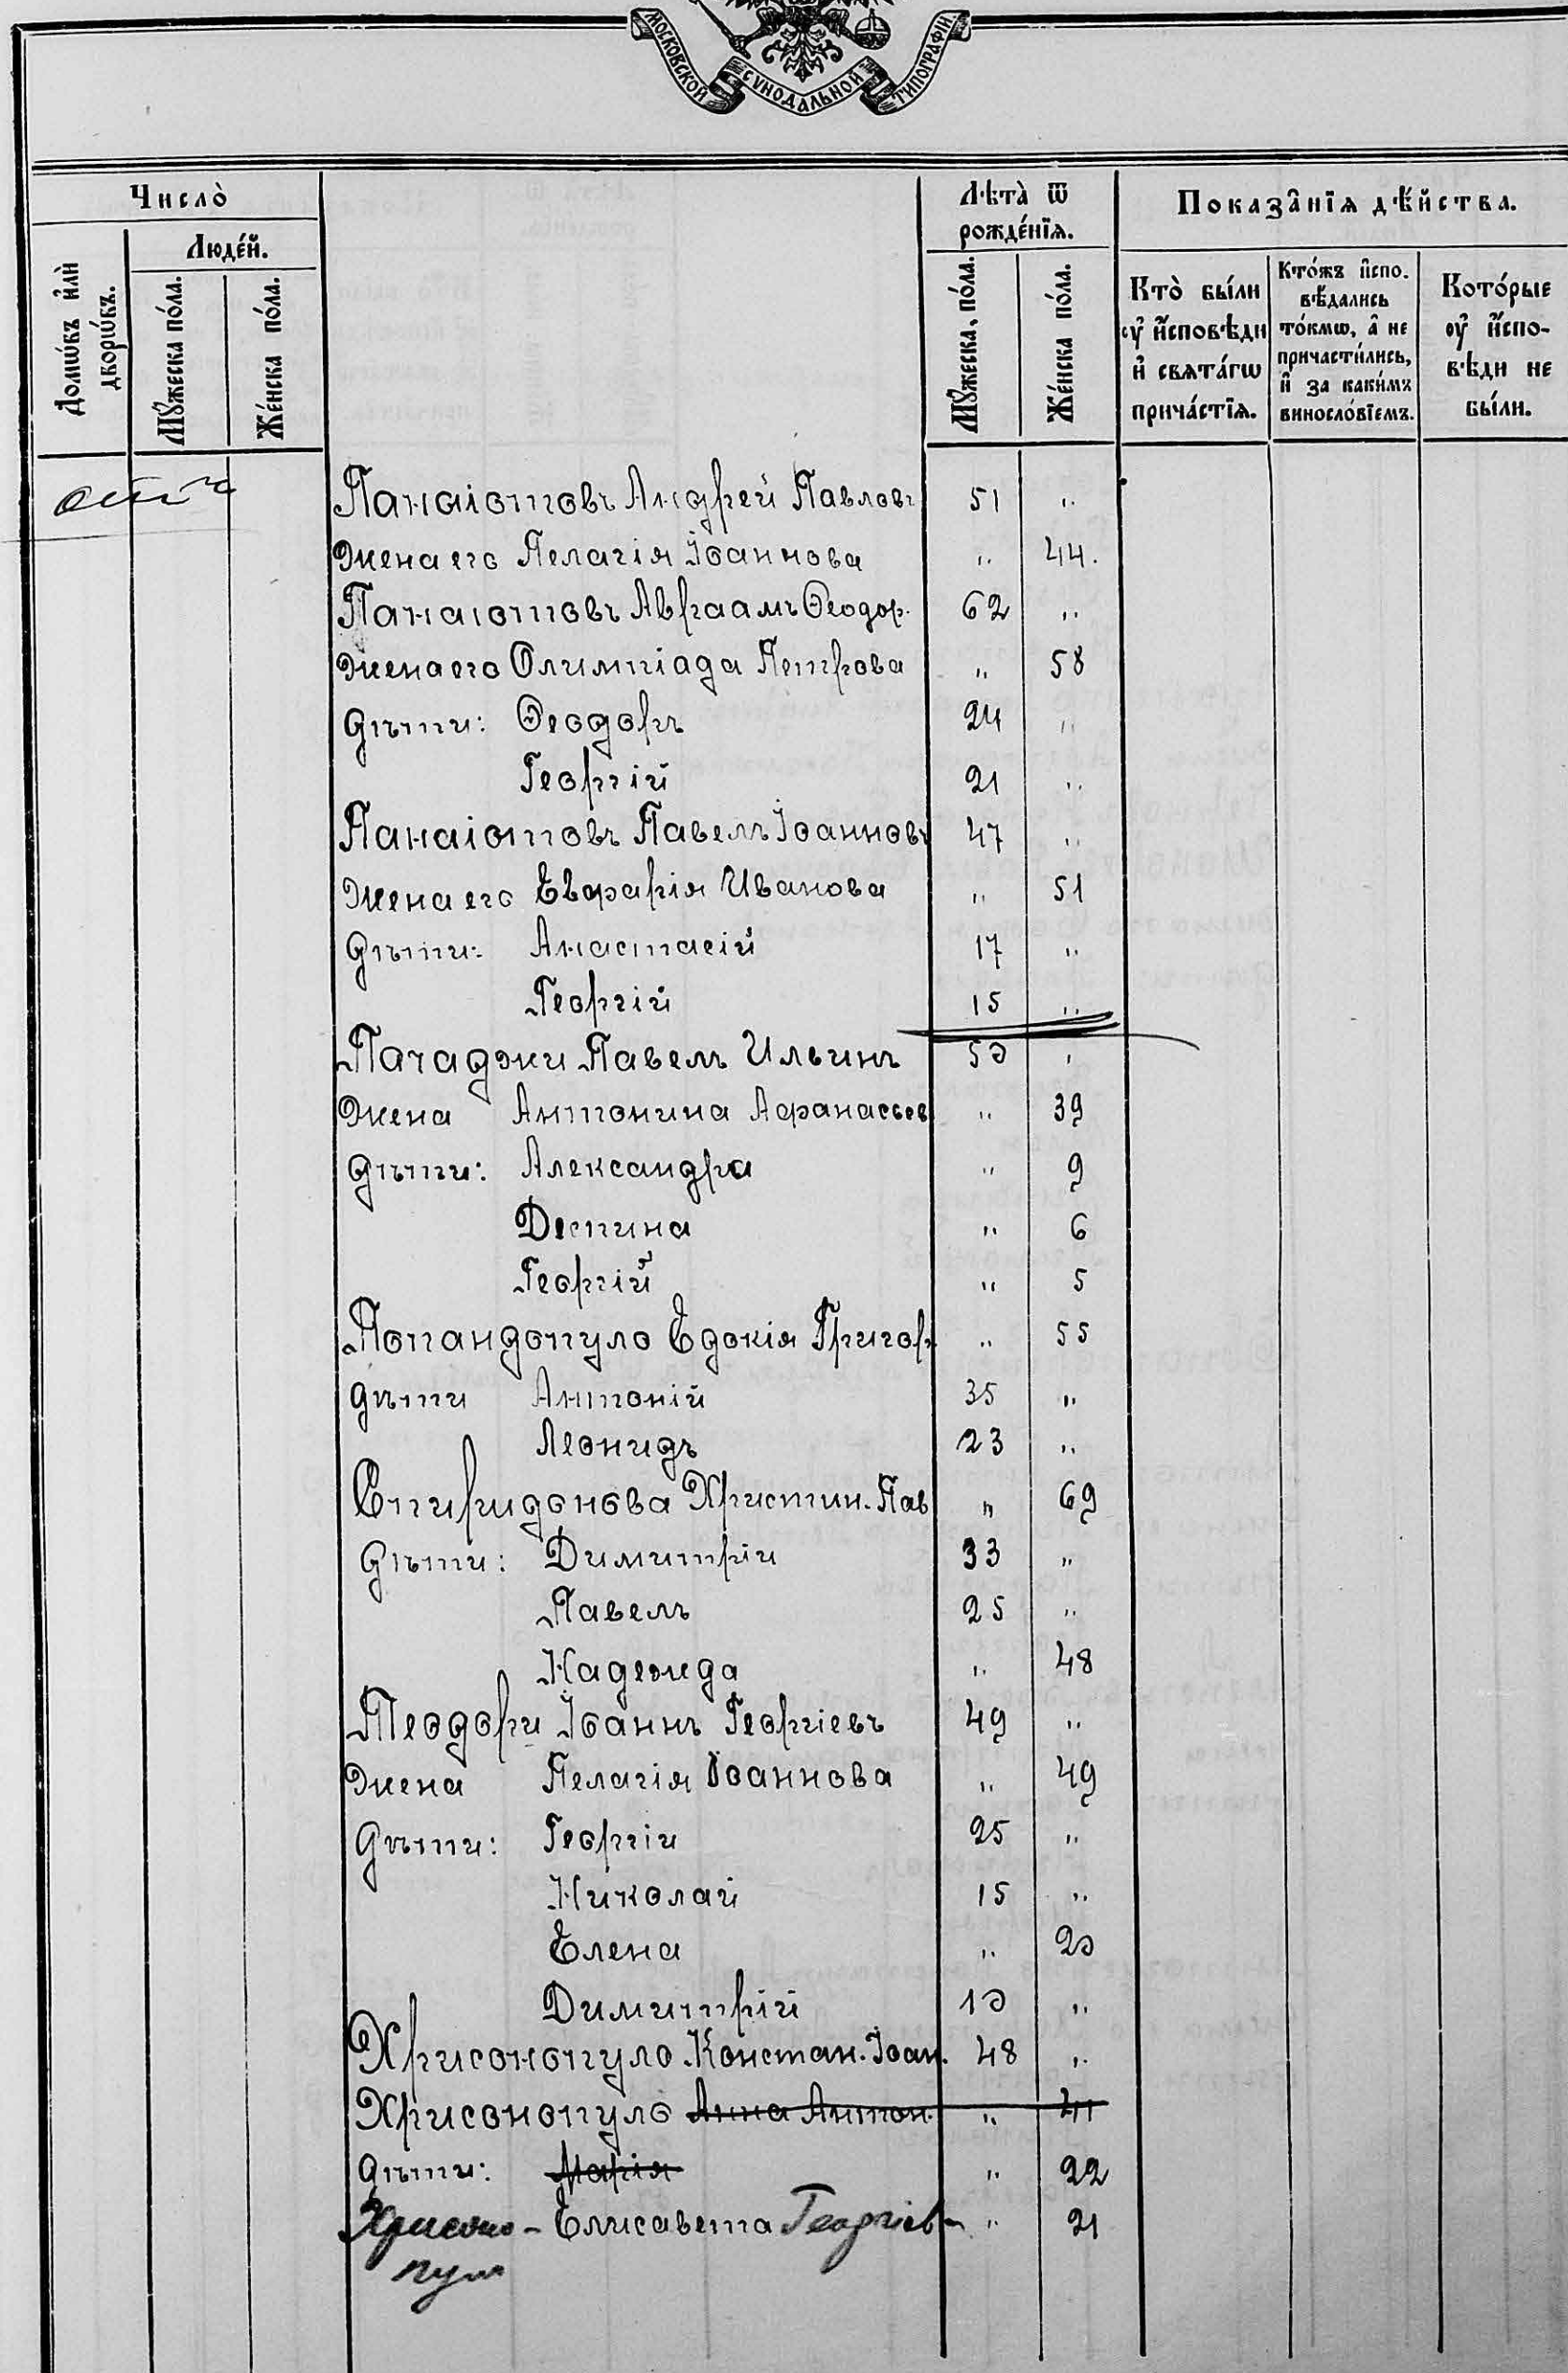 МОСКОВСКОЙ СѴНОДАЛЬНОЙ ТИПОГРАФІИ
Число̀
Домѡ́въ и҆лѝ дворѡ́въ.
Люде́й.
Мꙋ́жеска по́ла.
Же́нска по́ла.
Лѣ́та̀ ѿ рожде́нїѧ.
Мꙋ́жеска, по́ла.
Же́нска по́ла.
Показа̂нїѧ дѣ́йства.
Кто̀ бы́ли
ᲂу҆ и҆́сповѣди
и҆ свѧта́гѡ
прича́стїѧ.
Кто́жъ и҆спо-
вѣ́дались
то́кмѡ, а҆ не
причасти́лись,
и҆ за каки́мъ
винословїемъ.
Кото́рые
ᲂу҆ и҆́спо-
вѣди не
бы́ли.
Панаіотовъ Андрей Павловъ 51 "
Жена его Пелагія Іоаннова " 44.
Панаіотовъ Авраамъ Ѳеодор. 62 "
Жена его Олимпіада Петрова " 58
Дѣти: Ѳеодоръ 24 "
Георгій 21 "
Панаіотовъ Павелъ Іоанновъ 47 "
Жена его Евфрарія Иванова " 51
Дѣти: Анастасій 17 "
Георгій 15 "
Пачаджи Павелъ Ильинъ 50 "
Жена Антонина Афанасьев " 39
Дѣти: Александра " 9
Деспина " 6
Георгій " 5
Попандопуло Едокія Григор. " 55
дѣти Антоній 35 "
Леонидъ 23 "
Спиридонова Христин. Пав " 69
Дѣти: Димитрій 33 "
Павелъ 25 "
Надежда " 48
Теодори Іоаннъ Георгіевъ 49 "
Жена Пелагія Іоаннова " 49
Дѣти: Георгіи 25 "
Николай 15 "
Елена " 20
Димитрій 10 "
Хрисонопуло Констан. Іоан. 48 "
Хрисонопуло Анна Антон. " 41
Дѣти: Марія " 22
Хрисоно- Елисавета Георгіев " 21
пуло